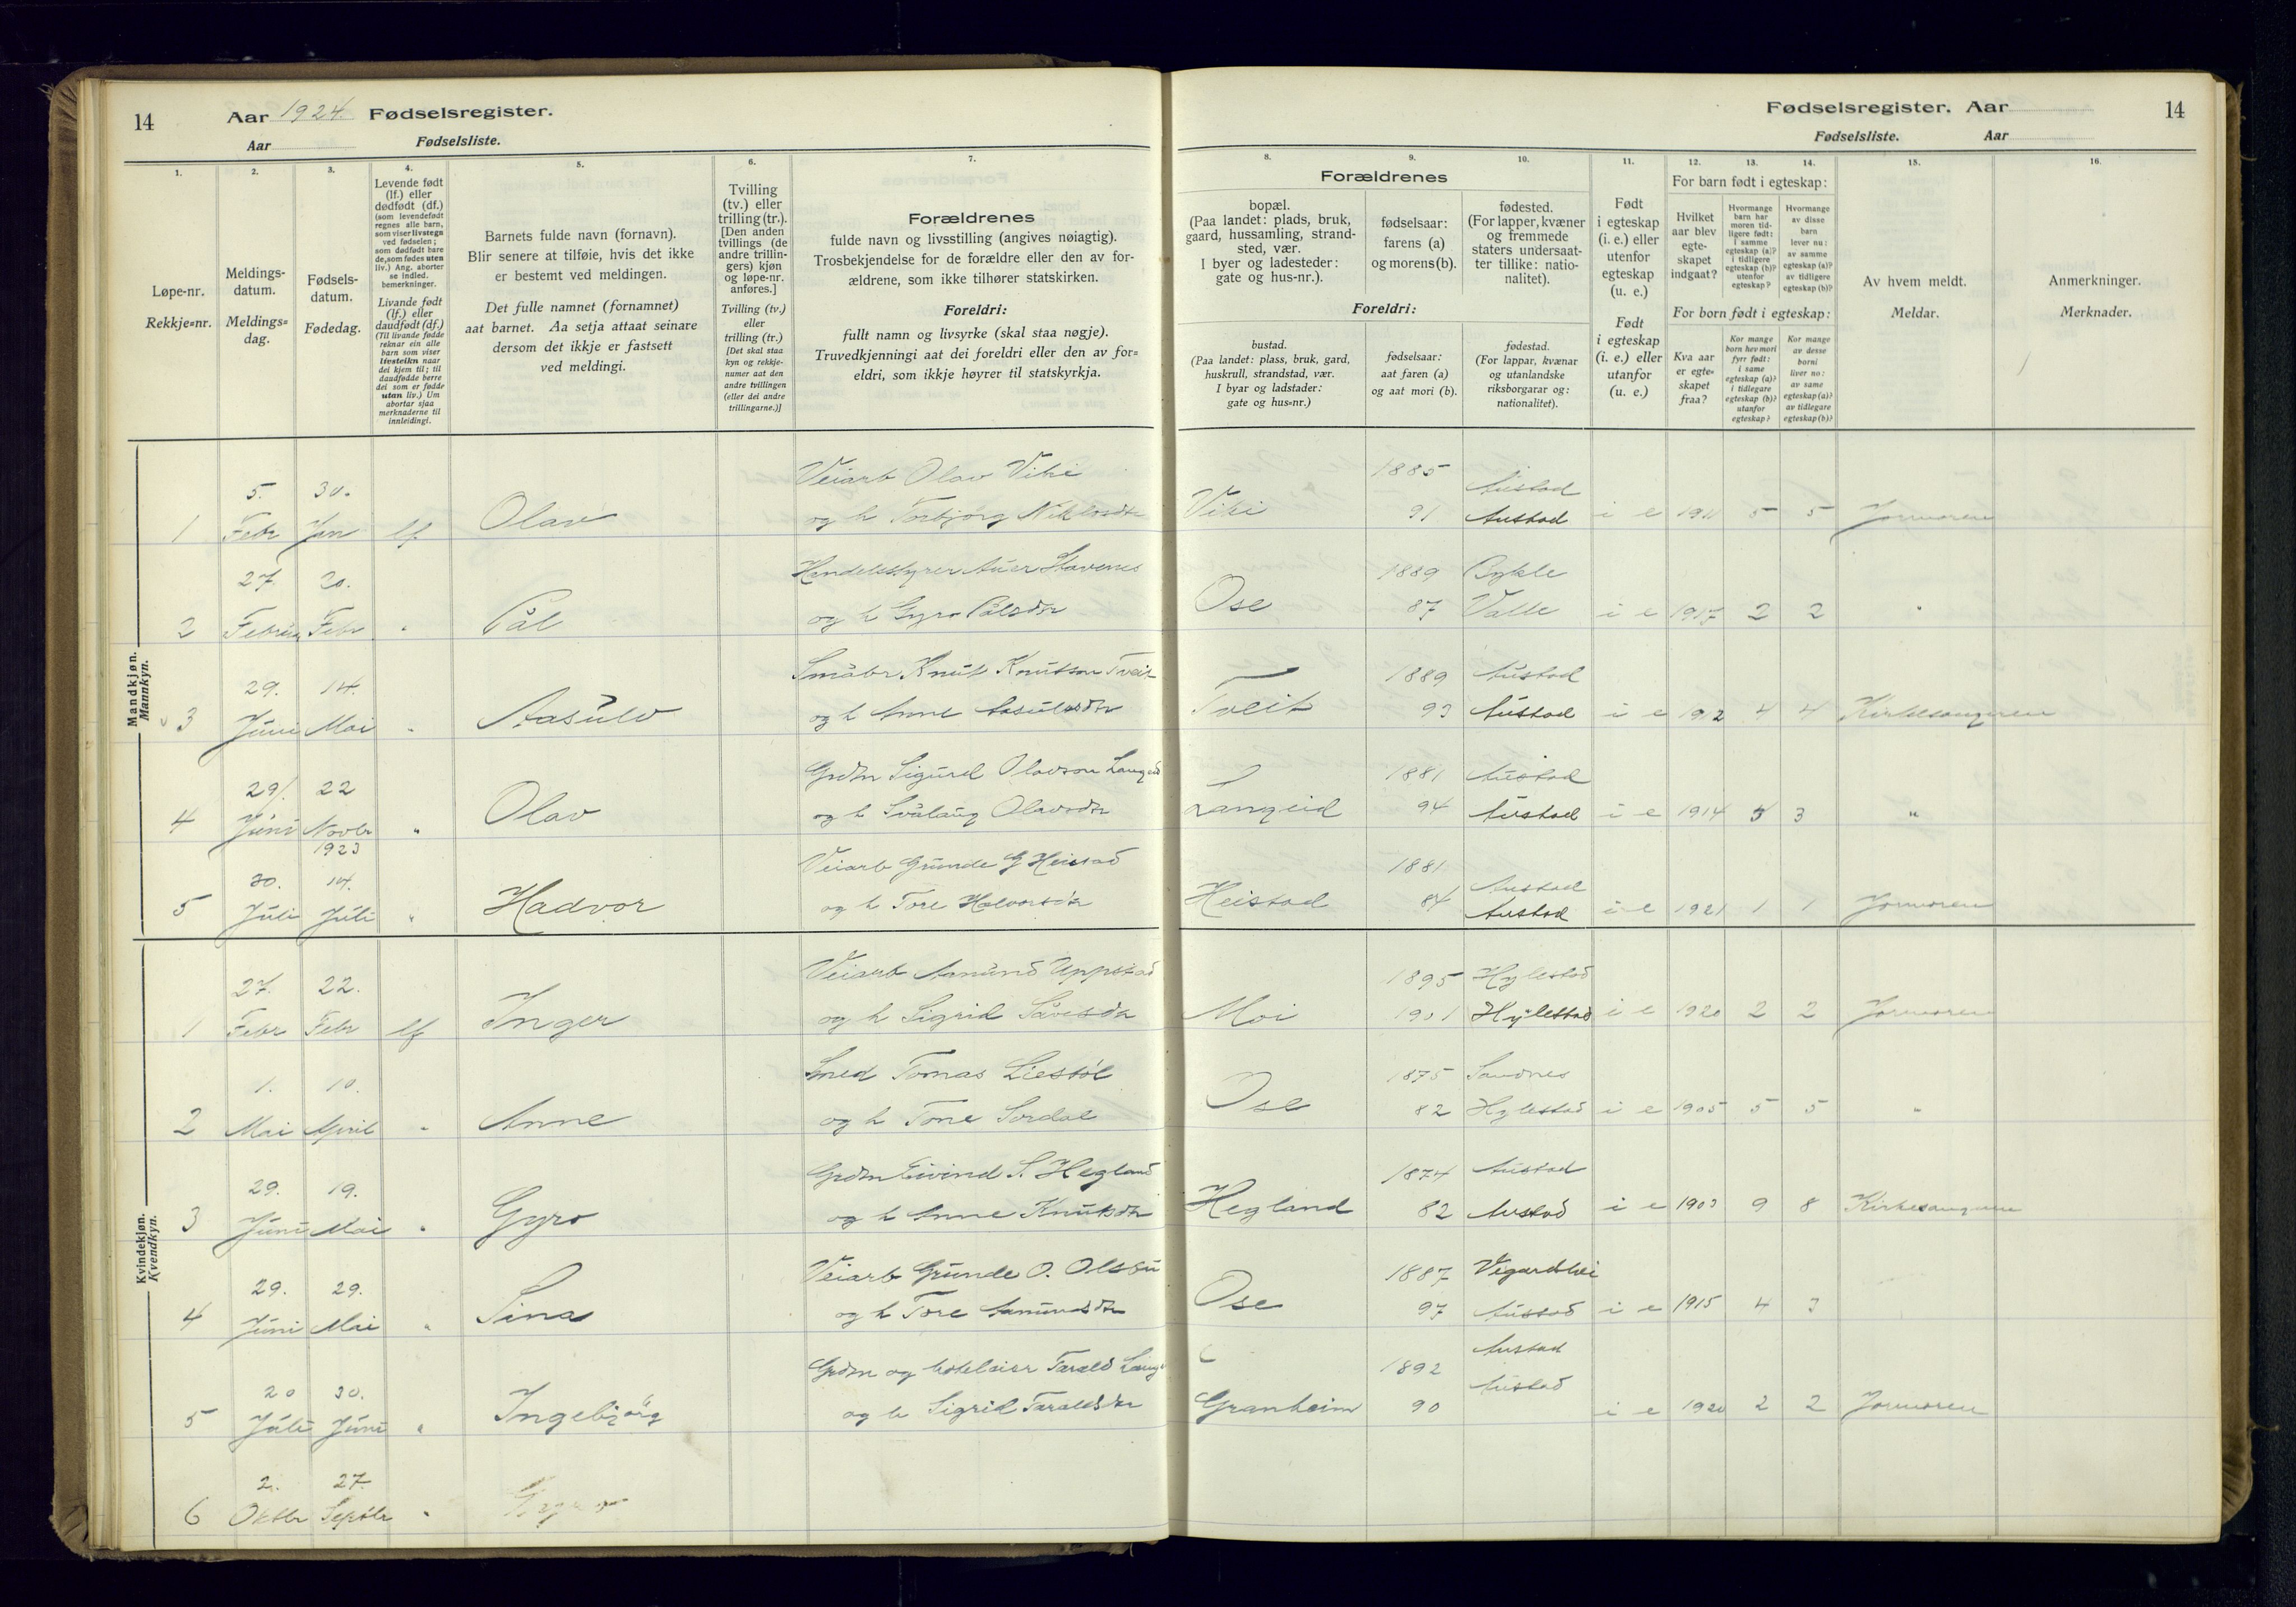 14 Aar 1924. Fødselsregister.
Aar Fødselsliste.
Fødselsregister. Aar 14
Fødselsliste. Aar
1. 2. 3. 4. 5. 6. 7. 8. 9. 10. 11. 12. 13. 14. 15. 16.
Løpe-nr.
Rekkje=nr.
Meldings-
datum.
Meldings=
dag.
Fødsels-
datum.
Fødedag.
Levende født
(lf.) eller
dødfødt (df.)
(som levendefødt
regnes alle barn,
som viser livstegn
ved fødselen;
som dødfødt bare
de, som fødes uten
liv.) Ang. aborter
se indled.
bemerkninger.
Livande født
(lf.) eller
daudfødt (df.)
(Til livande fødde
reknar ein alle
barn som viser
livsteikn naar
dei kjem til; til
daudfødde berre
dei som er fødde
utan liv.) Um
abortar sjaa
merknaderne til
innleidingi.
Barnets fulde navn (fornavn).
Blir senere at tilføie, hvis det ikke
er bestemt ved meldingen.
Det fulle namnet (fornamnet)
aat barnet. Aa setja attaat seinare
dersom det ikkje er fastsett
ved meldingi.
Tvilling
(tv.) eller
trilling (tr.).
[Den anden
tvillings (de
andre trillin-
gers) kjøn
og løpe-nr.
anføres.]
Tvilling (tv.)
eller
trilling (tr.)
[Det skal staa
kyn og rekkje-
numer aat den
andre tvillingen
(eller dei andre
trillingarne.)]
Forældrenes
fulde navn og livsstilling (angives nøiagtig).
Trosbekjendelse for de forældre eller den av for-
ældrene, som ikke tilhører statskirken.
Foreldri:
fullt namn og livsyrke (skal staa nøgje).
Truvedkjenningi aat dei foreldri eller den av for=
eldri, som ikkje høyrer til statskyrkja.
Forældrenes
bopæl.
(Paa landet: plads, bruk,
gaard, hussamling, strand-
sted, vær.
I byer og ladesteder:
gate og hus-nr.).
fødselsaar:
farens (a)
og morens (b).
fødested.
(For lapper, kvæner
og fremmede
staters undersaat-
ter tillike: natio-
nalitet).
Foreldri:
bustad.
(Paa landet: plass, bruk, gard,
huskrull, strandstad, vær.
I byar og ladstader:
gate og hus=nr.)
fødselsaar:
aat faren (a)
og aat mori (b).
fødestad.
(For lappar, kvænar
og utanlandske
riksborgarar og:
nationalitet).
Født
i egteskap
(i. e.) eller
utenfor
egteskap
(u. e.)
Født
i egteskap
(i. e.) eller
utanfor
(u. e.)
For barn født i egteskap:
Hvilket
aar blev
egte-
skapet
indgaat?
Hvormange
barn har
moren tid-
ligere født:
i samme
egteskap (a)?
i tidligere
egteskap (b)?
utenfor
egteskap?
Hvormange
av disse
barn
lever nu:
av samme
egteskap (a)?
av tidligere
egteskap (b)?
For born født i egteskap:
Kva aar
er egte=
skapet
fraa?
Kor mange
born hev mori
fyrr født:
i same
egteskap (a)?
i tidlegare
egteskap (b)?
utanfor
egteskap?
Kor mange
av desse
borni
liver no:
av same
egteskap (a)?
av tidlegare
egteskap (b)?
Av hvem meldt.
Meldar.
Anmerkninger.
Merknader.
Mandkjøn.
Mannkyn.
Veiarb Olav Viki 1885 Austad
5. 30.
1 Febr Jan lf Olav og h Torbjørg Viki 91 Austad i e 1911 5 5 Jormoren
27. 20. 1889 Bykle
2 Febr " Pål og h Gyro Pålsdtr Ose 87 Valle i e 1917 2 2 "
Småbr Knut Knutson Tveit 1889 Austad
29. 14.
3 Juni Mai " Aasulv og h Anne Aasulvsdtr Tveit 93 Austad i e 1912 4 4 Kirkesangeren
Grdm Sigurd Olavson Langeid 1881 Austad
29/. 22
4 Juni Novbr " Olav og h Svålaug Olavsdtr Langeid 94 Austad i e 1914 3 "
1923
Veiarb Gunde G Heistad 1881 Austad
30. 14.
5 Juli Juli " Hadvor og h Tore Halvorsdtr Heistad 84 Austad i e 1921 1 1 Jormoren
Kvindekjøn.
Kvendkyn.
Veiarb Aamund Uppstad 1895 Hylestad
27. 22.
1 Febr Febr lf Inger og h Sigrid Moi 1901 Hylestad i e 1920 2 2 Jormoren
Smed Tomas Liestöl 1875 Sandnes
1. 10.
2 Mai April " Anne og h Tone Sordal Ose 82 Hylestad i e 1905 5 5 "
Grdm Eivind S. Hegland 1874 Austad
29. 19.
3 Juni Mai " Gyro og h Anne Knutsdtr Hegland 82 Austad i e 1903 9 8 Kirkesangeren
Veiarb Gunde O. 1887
29. 29.
4 Juni Mai " Sina og h Tore Aamundsdtr Ose 97 Austad i e 1915 4 3
Grdm og Tarald 1892 Austad
20 30. Austad
5 Juli Juni " Ingebjörg og h Sigrid Taraldsdtr Granheim 90 i e 1920 2 2 Jormoren
2. 27.
6 Oktbr Septbr "